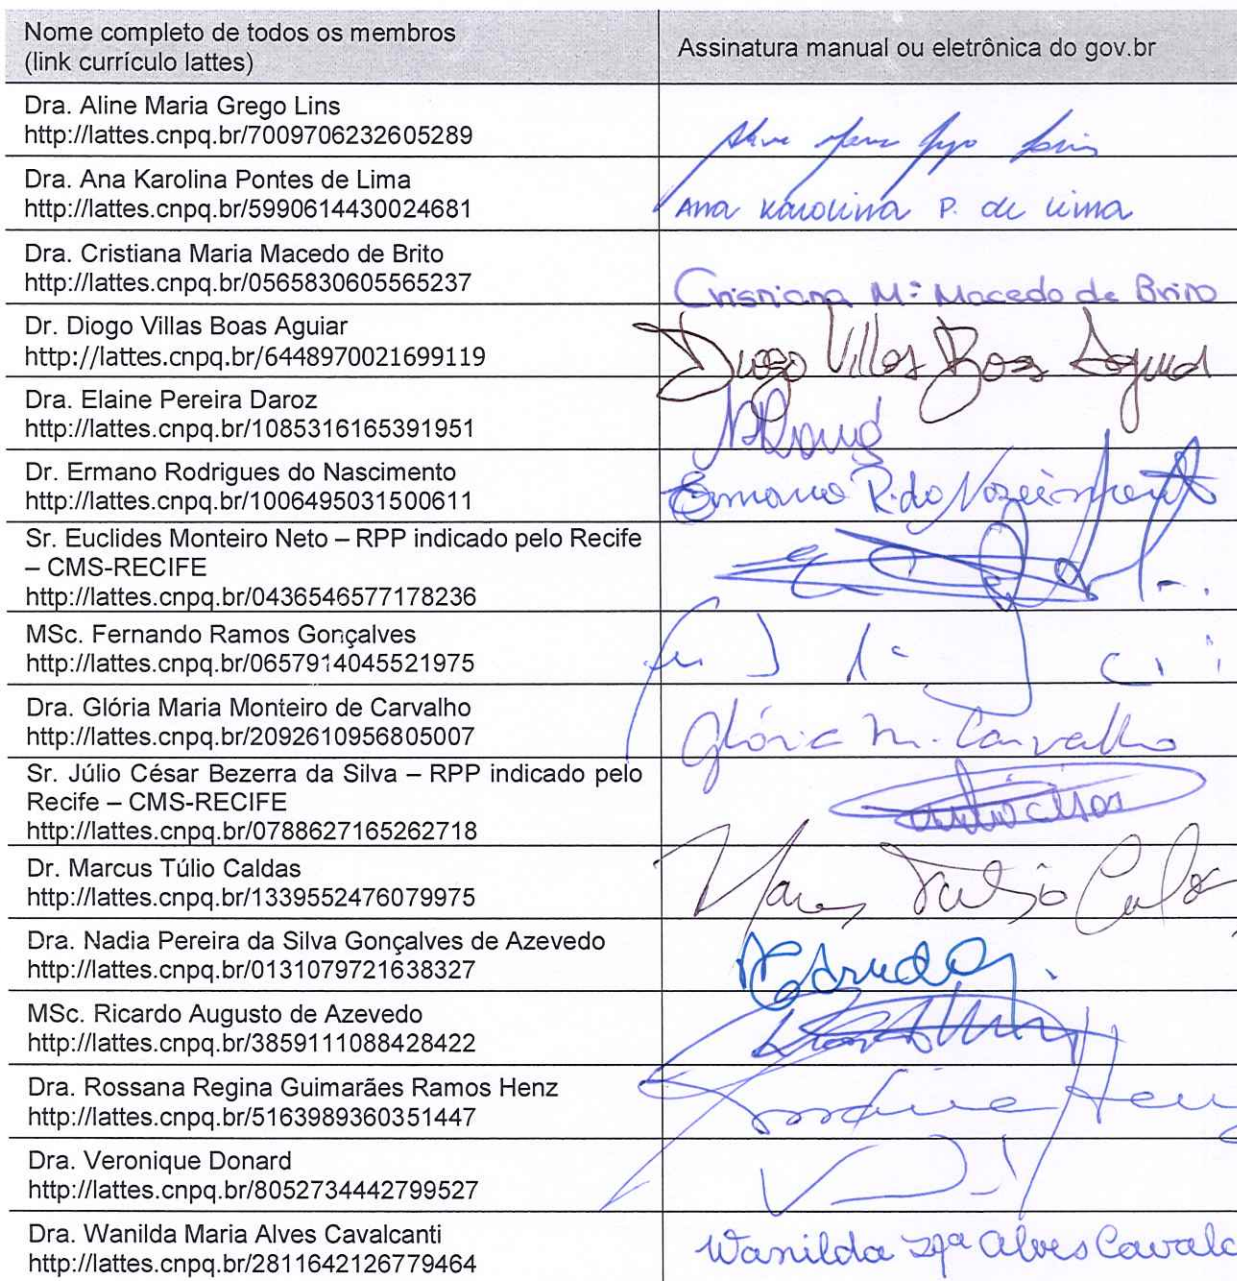 Nome completo de todos os membros
(link currículo lattes)
Assinatura manual ou eletrônica do gov.br
Dra. Aline Maria Grego Lins
http://lattes.cnpq.br/7009706232605289
Dra. Ana Karolina Pontes de Lima
http://lattes.cnpq.br/5990614430024681
Ana Karolina P. de Lima
Dra. Cristiana Maria Macedo de Brito
http://lattes.cnpq.br/0565830605565237
Cristiana Mª Macedo de Brito
Dr. Diogo Villas Boas Aguiar
http://lattes.cnpq.br/6448970021699119
Diogo Villas Boas Aguiar
Dra. Elaine Pereira Daroz
http://lattes.cnpq.br/1085316165391951
Dr. Ermano Rodrigues do Nascimento
http://lattes.cnpq.br/1006495031500611
Ermano R. do Nascimento
Sr. Euclides Monteiro Neto – RPP indicado pelo Recife
– CMS-RECIFE
http://lattes.cnpq.br/0436546577178236
MSc. Fernando Ramos Gonçalves
http://lattes.cnpq.br/0657914045521975
Dra. Glória Maria Monteiro de Carvalho
http://lattes.cnpq.br/2092610956805007
Glória M. Carvalho
Sr. Júlio César Bezerra da Silva – RPP indicado pelo
Recife – CMS-RECIFE
http://lattes.cnpq.br/0788627165262718
Dr. Marcus Túlio Caldas
http://lattes.cnpq.br/1339552476079975
Dra. Nadia Pereira da Silva Gonçalves de Azevedo
http://lattes.cnpq.br/0131079721638327
MSc. Ricardo Augusto de Azevedo
http://lattes.cnpq.br/3859111088428422
Dra. Rossana Regina Guimarães Ramos Henz
http://lattes.cnpq.br/5163989360351447
Dra. Veronique Donard
http://lattes.cnpq.br/8052734442799527
Dra. Wanilda Maria Alves Cavalcanti
http://lattes.cnpq.br/2811642126779464
Wanilda Mª Alves Cavalc